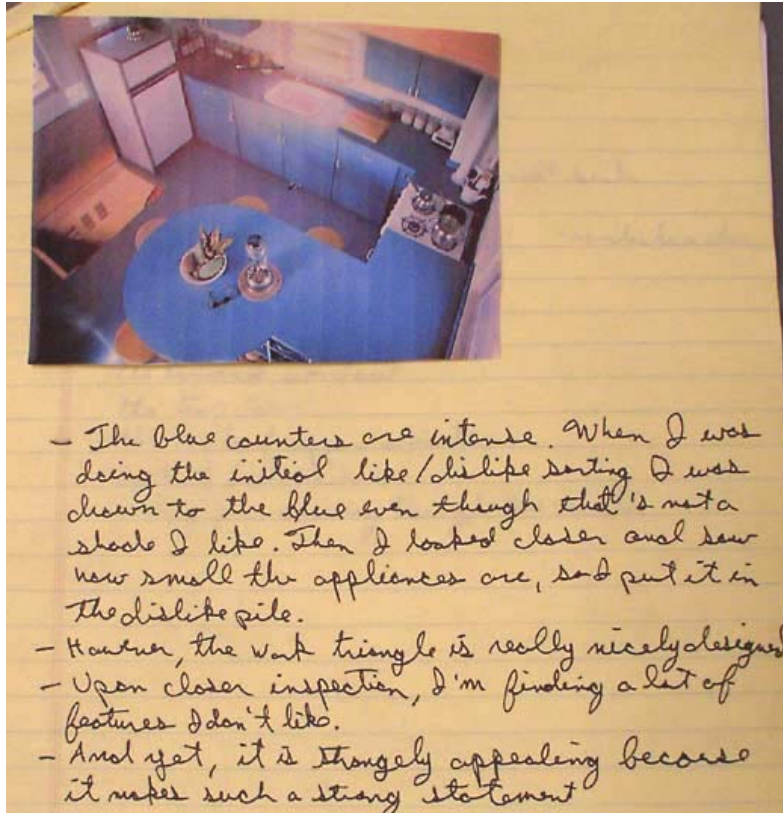 - The blue counters are intense. When I was
doing the initial like/dislike sorting I was
drawn to the blue even though that's not a
shade I like. Then I looked closer and saw
how small the appliances are, so I put it in
the dislike pile.
- However, the work triangle is really nicely designed
- Upon closer inspection, I'm finding a lot of
features I don't like.
- And yet, it is strangely appealing because
it makes such a strong statement